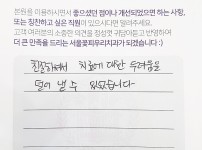 본원을 이용하시면서 좋으셨던 점이나 개선되었으면 하는 사항,
또는 칭찬하고 싶은 직원이 있으시다면 알려주세요.
고객 여러분의 소중한 의견을 정성껏 귀담아듣고 반영하여
더 큰 만족을 드리는 서울꽃피우리치과가 되겠습니다 :)
친절하셔서 치료에 대한 두려움을
덜어 낼 수 있었습니다